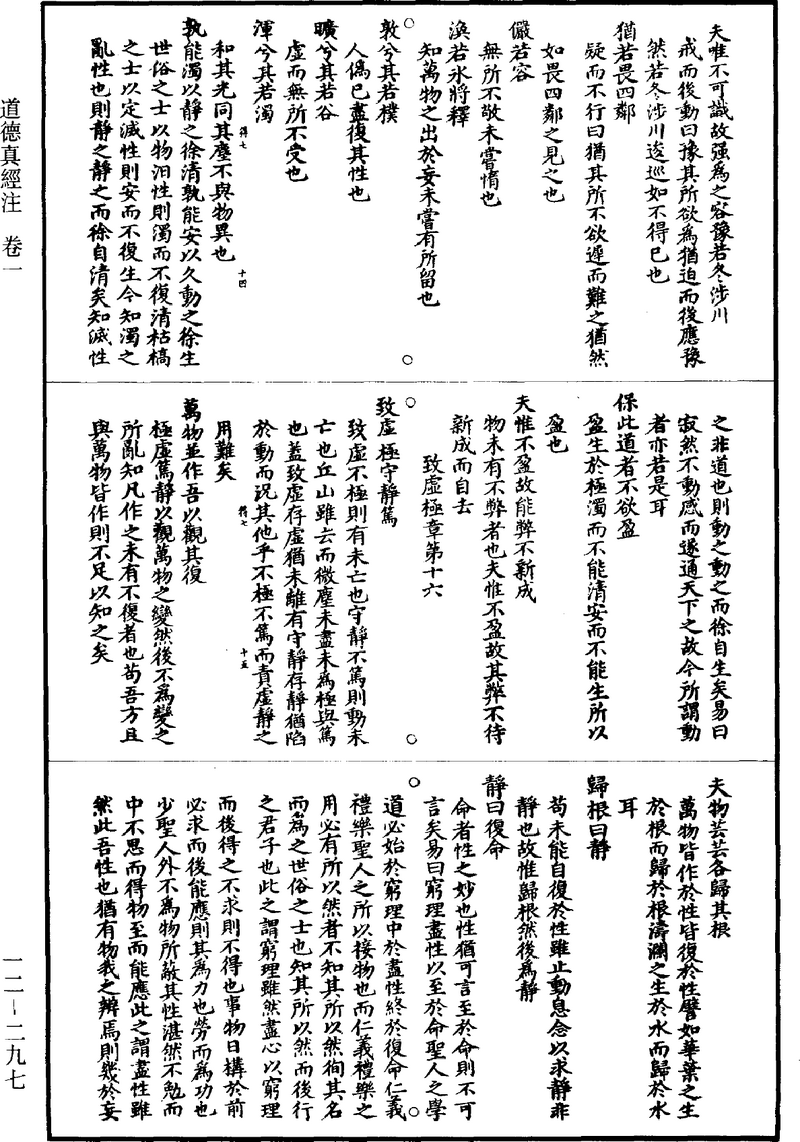 道德真經注　卷一
夫唯不可識故強為之容豫若冬涉川
戒而後動曰豫其所欲為猶迫而後應豫
然若冬涉川逡巡如不得已也
猶若畏四鄰
疑而不行曰猶其所不欲遲而難之猶然
如畏四鄰之見之也
儼若容
無所不敬未嘗惰也
渙若冰將釋
知萬物之出於妄未嘗有所留也
敦兮其若樸
人偽已盡復其性也
曠兮其若谷
虛而無所不受也
渾兮其若濁
和其光同其塵不與物異也
得七
十四
孰能濁以靜之徐清孰能安以久動之徐生
世俗之士以物汩性則濁而不復清枯槁
之士以定滅性則安而不復生今知濁之
亂性也則靜之靜之而徐自清矣知滅性
之非道也則動之動之而徐自生矣易曰
寂然不動感而遂通天下之故今所謂動
者亦若是耳
保此道者不欲盈
盈生於極濁而不能清安而不能生所以
盈也
夫惟不盈故能弊不新成
物未有不弊者也夫惟不盈故其弊不待
新成而自去
致虛極章第十六
致虛極守靜篤
致虛不極則有未亡也守靜不篤則動未
亡也丘山雖去而微塵未盡未為極與篤
也蓋致虛存虛猶未離有守靜存靜猶陷
於動而況其他乎不極不篤而責虛靜之
用難矣
得七
十五
萬物並作吾以觀其復
極虛篤靜以觀萬物之變然後不為變之
所亂知凡作之未有不復者也苟吾方且
與萬物皆作則不足以知之矣
夫物芸芸各歸其根
萬物皆作於性皆復於性譬如華葉之生
於根而歸於根濤瀾之生於水而歸於水
耳
歸根曰靜
苟未能自復於性雖止動息念以求靜非
靜也故惟歸根然後為靜
靜曰復命
命者性之妙也性猶可言至於命則不可
言矣易曰窮理盡性以至於命聖人之學
道必始於窮理中於盡性終於復命仁義
禮樂聖人之所以接物也而仁義禮樂之
用必有所以然者不知其所以然徇其名
而為之世俗之士也知其所以然而後行
之君子也此之謂窮理雖然盡心以窮理
而後得之不求則不得也事物日構於前
必求而後能應則其為力也勞而為功也
少聖人外不為物所蔽其性湛然不勉而
中不思而得物至而能應此之謂盡性雖
然此吾性也猶有物我之辨焉則幾於妄
一二－二九七